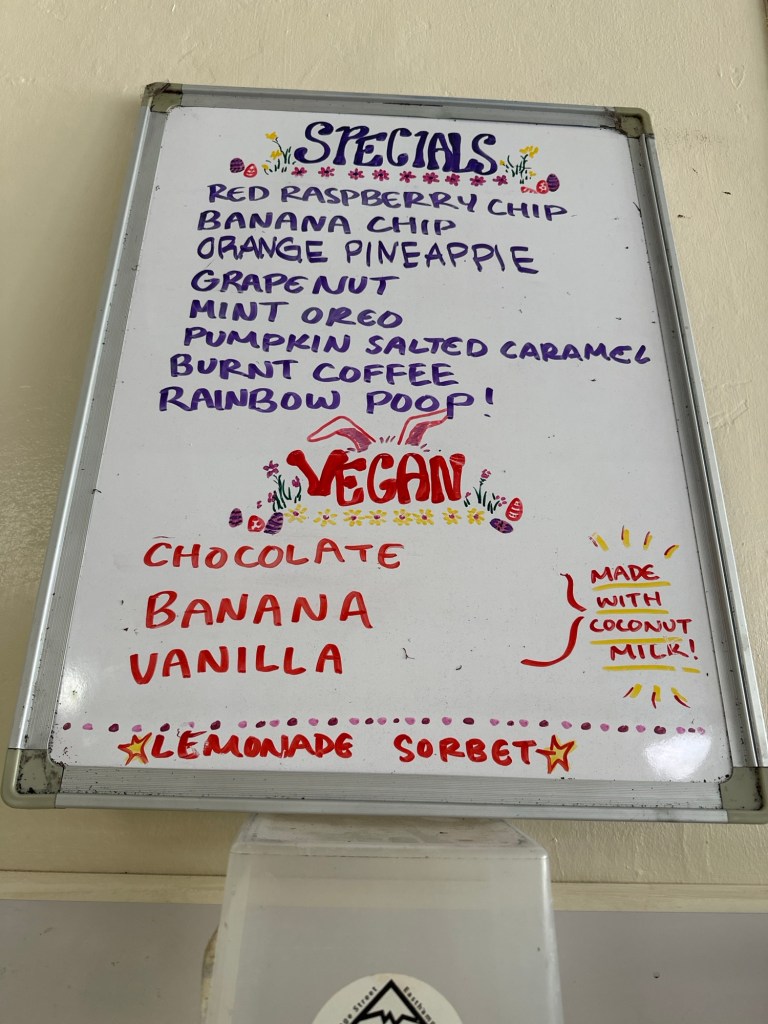 SPECIALS
RED RASPBERRY CHIP
BANANA CHIP
ORANGE PINEAPPLE
GRAPENUT
MINT OREO
PUMPKIN SALTED CARAMEL
BURNT COFFEE
RAINBOW POOP!
VEGAN
CHOCOLATE
BANANA
VANILLA
MADE
WITH
COCONUT
MILK!
LEMONADE SORBET
Street